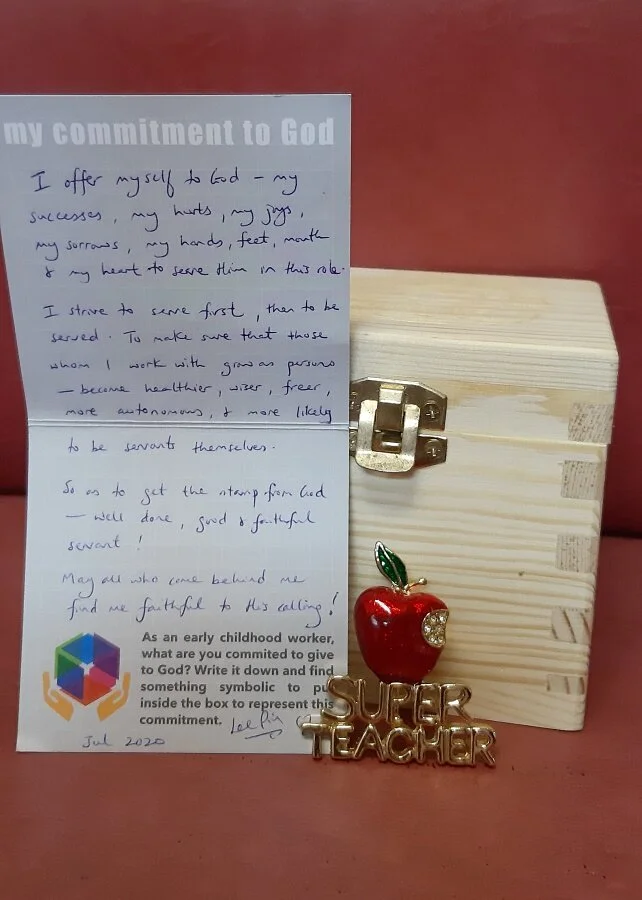 my commitment to God
I offer myself to God – my
successes, my hurts, my joys,
my sorrows, my hands, feet, mouth
& my heart to serve Him in this role.
I strive to serve first, then to be
served. To make sure that those
whom I work with grow as persons
– become healthier, wiser, freer,
more autonomous, & more likely
to be servants themselves.
So as to get the stamp from God
– well done, good & faithful
servant!
May all who come behind me
find me faithful to His calling!
As an early childhood worker,
what are you commited to give
to God? Write it down and find
something symbolic to pu
inside the box to represent this
commitment.
Jul 2020
SUPER
TEACHER